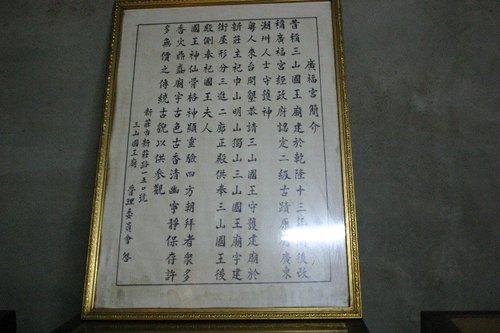 廣福宮簡介
昔稱三山國王廟建於乾隆十三年 後改
稱廣福宮經政府認定二級古蹟原為廣東
潮州人士守護神
粵人來台開墾恭請三山國王守護建廟於
新莊主祀巾山明山獨山三山國王廟宇建
街屋形分三進二廊正殿供奉三山國王後
殿側奉祀國王夫人
國王神仙骨格神顯靈驗四方朝拜者眾多
香火鼎盛廟宇古色古香清幽寧靜保存許
多無價之傳統古貌以供參觀
新莊市新莊路一五〇號
三山國王廟 管理委員會 啓